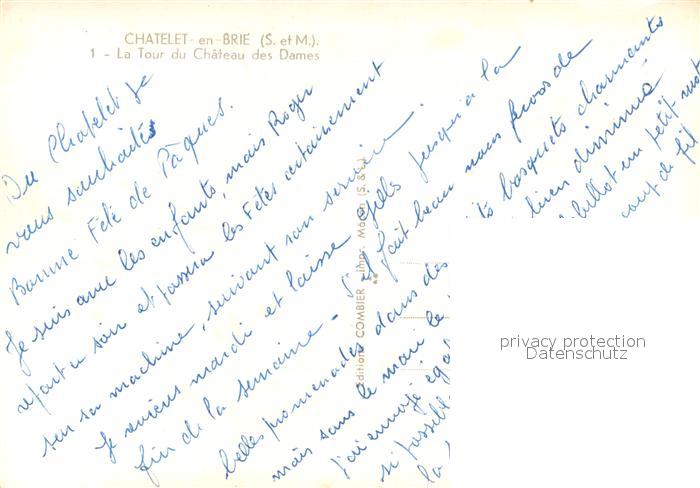 CHATELET-en-BRIE (S. et M.).
1 - La Tour du Château des Dames
Du Chatelet je
vous souhaite
Bonne Fête de Pâques.
Je suis avec les enfants, mais Roger
repart ce soir et passera les Fêtes certainement
sur sa machine, suivant son service.
Je reviens mardi et laisse Gills jusqu'à la
fin de la semaine - S'il fait beau nous ferons de
belles promenades dans des
ts bosquets charmants
mais sans le mari le
bien diminué
J'ai envoyé
billet un petit mot
si possible
coup de fil
la
Editions COMBIER Impr. Macon (S.&L.)
privacy protection
Datenschutz